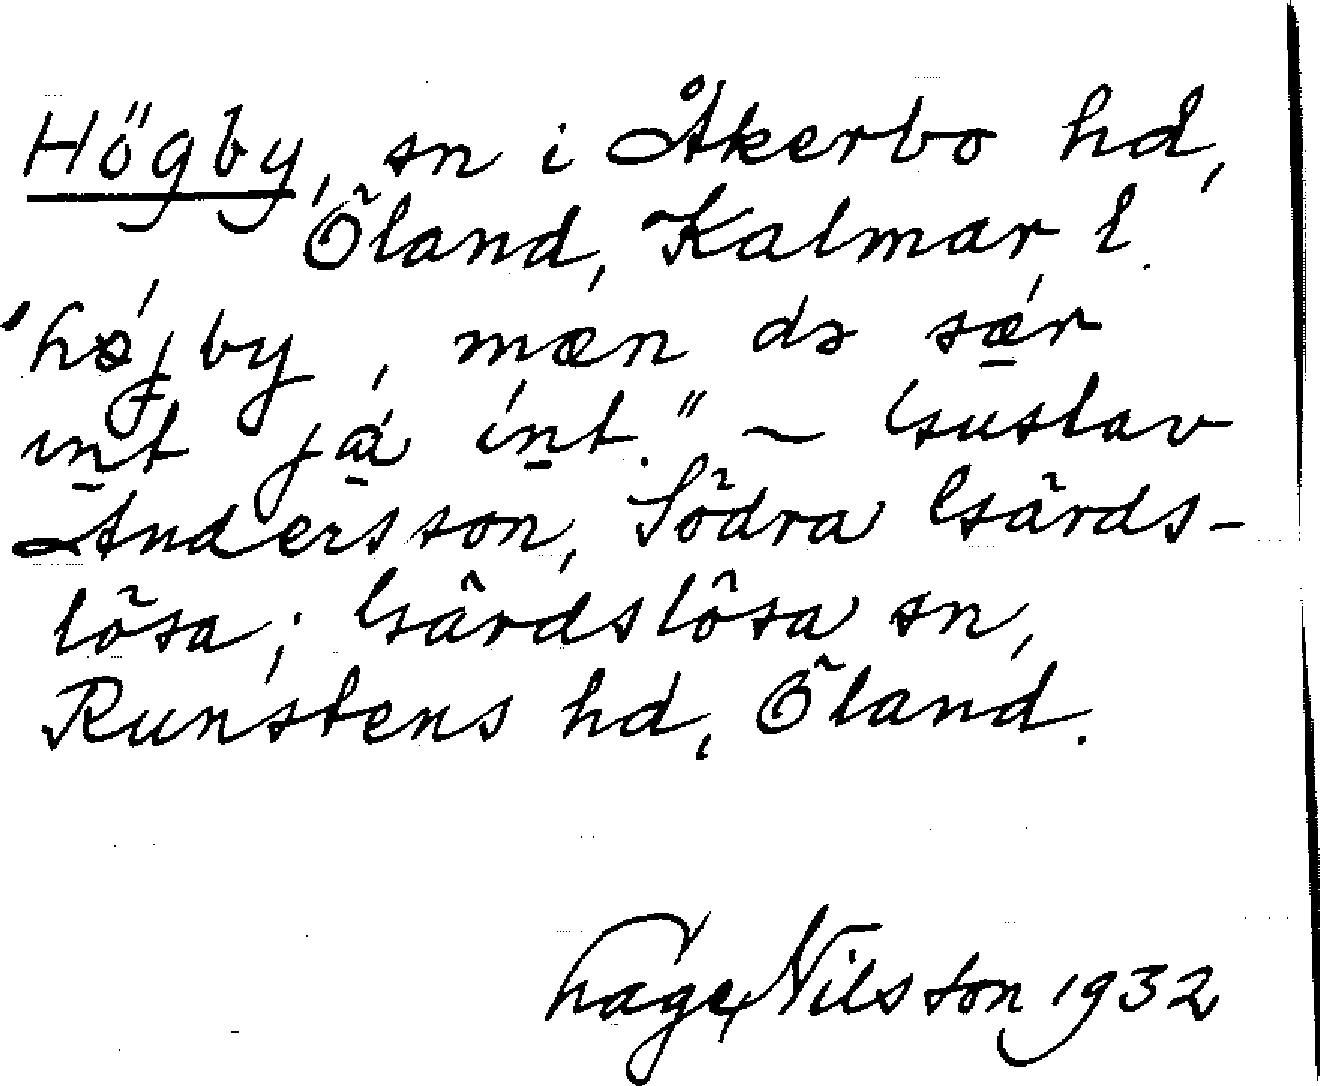 Högby, sn i Åkerbo hd,
Öland, Kalmar l.
"họ́jby, mæn dɘ sǽr
ınt já ínt." ~ Gustav
Andersson, Södra Gärds-
lösa; Gärdslösa sn,
Runstens hd, Öland.
Hage Nilsson 1932